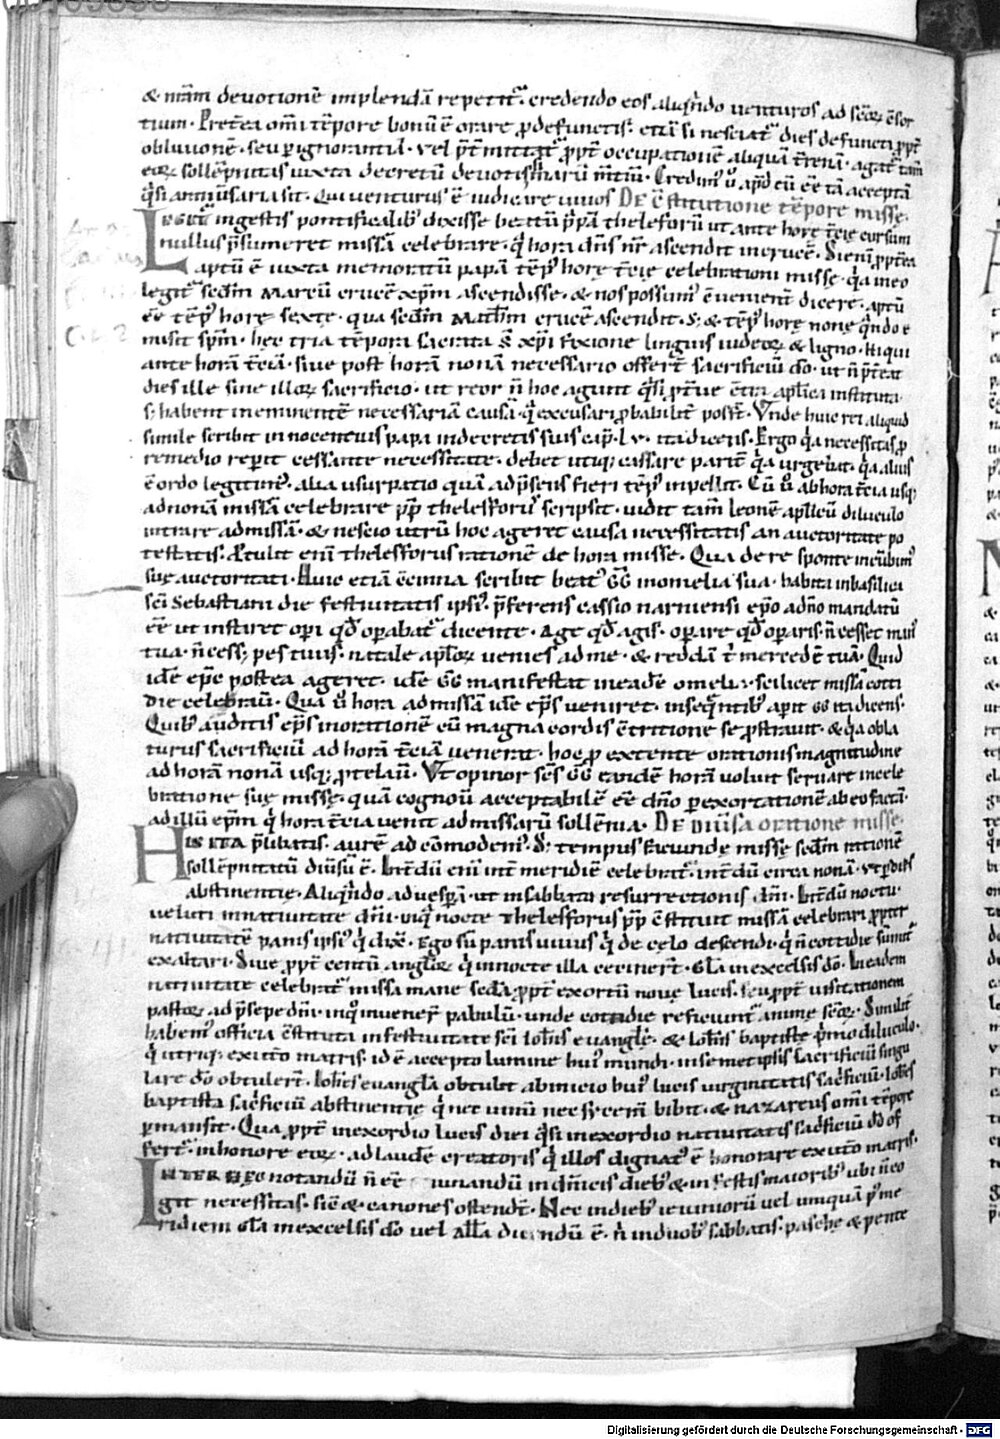 & nr̄am devotionē implendā repetit᷑. credendo eos aliqn̄do venturos ad
tium. Pret̄ea om̄i tēpore bonū ē orare ꝓ defunctis. etiā si nesciat᷑ dies defuncti ꝓpt̄
oblivionē. seu ꝑ ignorantiā. vel p̄t̄mittat᷑ ꝓpt̄ occupationē aliquā t̄renā. agat᷑ tam̄
eoꝝ sollēpnitas iuxta decretū devotissimarū m̄tiū. Credim᷒ ū ap̄d eū ēē tā acceptā
q̄si annūsaria sit. Qui venturus ē iudicare vivos DE C̄stitutione tēpore missę.
LEGIT in gestis pontificalib᷒ dixisse beatū p̄pā theleforū ut ante horę t̄cię cursum
nullus p̄sumeret missā celebrare. q̄ hora dn̄s nr̄ ascendit in crucē. Sic ni ꝓpt̄ea
aptū ē iuxta memoratū papā tēp᷒ horę t̄cię celebrationi missę. q̄a in eo
legit᷑ sed̄m Marcū crucē xp̄m ascendisse. & nos possum᷒ c̄venient̄ dicere. aptū
ēē tēp᷒ horę sextę. qua sed̄m Math̄m crucē ascendit. S; & tēp᷒ horę nonę q̄ndo e
misit sp̄m. hec tria tēpora sacrata s̄ xp̄i fixione linguis iudeoꝝ & ligno. Hi qui
ante horā t̄ciā. sive post horā nonā necessario offert̄ sacrificiū d̄o. ut n̄ p̄t̄eat
dies ille sine illoꝝ sacrificio. ut reor n̄ hoc agunt q̄si p̄t̄ve c̄tra ap̄lica instituta.
s; habent in eminentē necessariā causā. q̄ excusari ꝓbabilit̄ poss̄t. Unde huic rei aliquid
simile scribit innocentius papa in decretis suis cap̄. LV. ita dicens. Ergo q̄a necessitas ꝓ
remedio reperit cessante necessitate. debet utiq; cessare parit̄ q̄a urgebat. q̄a alius
ē ordo legitim᷒. alia usurpatio quā ad p̄sens fieri tēp᷒ inpellit. Cū ū ab hora t̄cia usq;
ad nonā missā celebrare p̄p̄ thelesforus scripsit. vidit tam̄ leonē ap̄licū diluculo
intrare ad missā. & nescio utrū hoc ageret causa necessitatis an auctoritate po
testatis. Ætulit eni thelesforus rationē de hora misse. Qua de re sponte incūbim᷒
suę auctoritati. Huic etiā c̄cinna scribit beat᷒ ḠḠ in omelia sua. habita in basilica
sc̄i Sebastiani die festivitatis ipsi᷒. p̄ferens cassio narniensi ep̄o a dn̄o mandatū
ēē ut instaret opi qd̄ opabat᷑ dicente. Age qd̄ agis. opare qd̄ oparis. n̄ cesset man᷒
tua. n̄ cess; pes tuus. natale ap̄loꝝ venies ad me. & reddā t̄ mercedē tuā. Quid
idē ep̄c postea ageret. idē ḠḠ manifestat in eadē omelia. scilicet missā cotti
die celebrav̄. Qua ū hora ad missā idē ep̄s veniret. in seq̄ntib᷒ aperit ḠḠ ita dicens.
Quib᷒ auditis ep̄s in orationē cū magna cordis c̄tritione se ꝓstravit. & q̄a obla
turus sacrificiū ad horā t̄ciā venerat. hoc ꝓ extente orationis magnitudine
ad horā nonā usq; ꝓtelav̄. Ut opinor sc̄s ḠḠ eandē horā voluit servare in cele
bratione suę missę. quā cognovi acceptabilē ēē dn̄o ꝑ exortationē ab eo factā.
ad illū ep̄m q̄ hora t̄cia venit ad missarū sollēnia. DE DIV̄Sa oratione missę.
HIS ITA p̄libatis. aurē ad cōmodem᷒. S; tempus faciundę missę sed̄m rationē
sollēpnitatū div̄sū ē. Int̄dū eni int̄ meridiē celebrat᷑. int̄dū circa nonā. ut ꝓ dieb᷒
abstinentię. Aliqn̄do ad vesp̄ā. ut in sabbato resurrectionis dn̄i. Int̄dū noctu.
veluti in nativitate dn̄i. in q̄ nocte Thelesforus p̄p̄ c̄stituit missā celebrari ꝓpter
nativitatē panis ipsi᷒ q̄ dix̄. Ego sū panis vivus q̄ de celo descendi. q̄ n̄ cottidie sūmit᷑
ex altari. Sive ꝓpt̄ centū angloꝝ. q̄ in nocte illa cecinert̄. Gl̄a in excelsis d̄o. In eadem
nativitate celebrat᷑ missa mane sedā. ꝓpt̄ exortū novę lucis. seu ꝓpt̄ visitationem
pastoꝝ ad p̄sepe dn̄i. in q̄ invener̄ pabulū. unde cottidie reficiunt᷑ animę sc̄oꝝ. Similit̄
habem᷒ officia c̄stituta in festivitate sc̄i Ioh̄is evanglę. & Ioh̄is baptistę p̄mo diluculo.
q̄ utriq; exuto matris. id ē accepto lumine hui᷒ mundi. in semetipsis sacrificiū singu
lare d̄o obtulert̄. Ioh̄is evangl̄a obtulit ab inicio hui᷒ lucis virginitatis sac̄ficiū. Ioh̄is
baptista sac̄ficiū abstinentię q̄ nec vinū nec sycerā bibit. & nazareus om̄i tēpore
ꝑmansit. Qua ꝓpt̄ in exordio lucis diei q̄si in exordio nativitatis sac̄ficiū d̄o of
fert̄. in honore eoꝝ. ad laudē creatoris q̄ illos dignat᷒ ē honorare exuto matris.
INTER HEC notandū n̄ ēē iunandū in dn̄icis dieb᷒ & in festis maiorib᷒ ubi n̄ co
git necessitas. sic & canones ostendt̄. Nec in dieb᷒ ieiuniorū vel unquā p᷒ me
ridiem gl̄a in excelsis d̄o vel all̄a dicendū ē. n̄ in duob᷒ sabbatis. paschę & pente
Digitalisierung gefördert durch die Deutsche Forschungsgemeinschaft - DFG